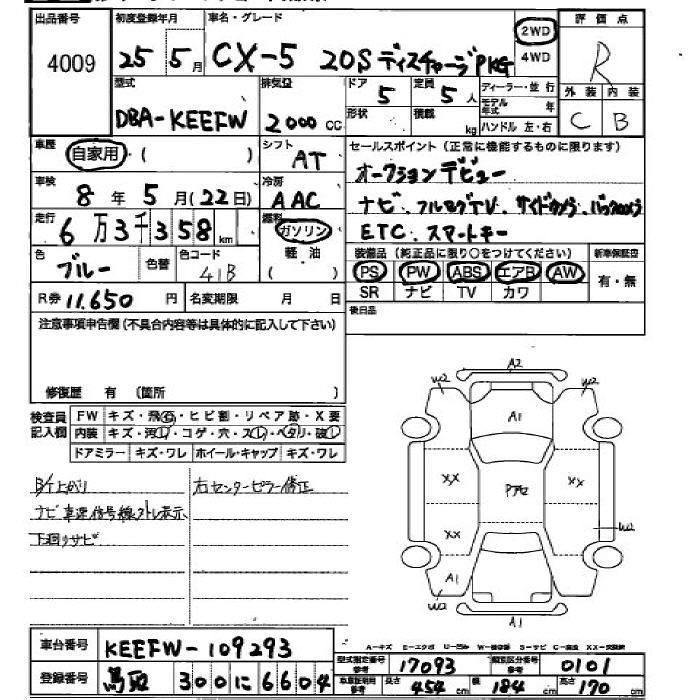 出品番号 初度登録年月 車名・グレード 評価点
4009 25 5月 CX-5 20S ディスチャージPKG 2WD 4WD R
型式 排気量 ドア 定員 ディーラー・並行 外装 内装
DBA-KEEFW 2000 CC 5 5人 モデル年式 年 C B
形状 積載 kg ハンドル 左・右
車歴 自家用・( ) シフト AT セールスポイント(正常に機能するものに限ります)
車検 8年5月(22日) 冷房 AAC オークションデビュー
走行 6万3千358km 燃料 ガソリン 軽油 ( ) ナビ、フルセグTV、サイドカメラ、バックカメラ
ETC、スマートキー
色 ブルー 色替 色コード 41B 装備品(純正品に限り○をつけてください) 新車保証書
PS PW ABS エアB AW 有・無
SR ナビ TV カワ
R券 11,650円 名変期限 月 日 後日品
注意事項申告欄(不具合内容等は具体的に記入して下さい)
修復歴 有 (箇所 )
検査員記入欄 FW キズ・飛石・ヒビ割・リペア跡・X要
内装 キズ・汚レ・コゲ・穴・スレ・ベタリ・破レ
ドアミラー キズ・ワレ ホイール・キャップ キズ・ワレ
B/下上がり 右センターピラー修正
ナビ車速信号線ストレ表示
下廻りサビ
A2
W2 W2
A1
XX Pアセ XX
XX W2
A1
W2
A1
A-キズ E-エクボ U-凹み W-補修跡 S-サビ C-腐食 XX-交換跡
車台番号 KEEFW-109293 型式指定番号 参考 17093 類別区分番号 参考 0101
登録番号 鳥取 300 に 6604 車庫証明用 参考 長さ 454cm 幅 184cm 高さ 170cm